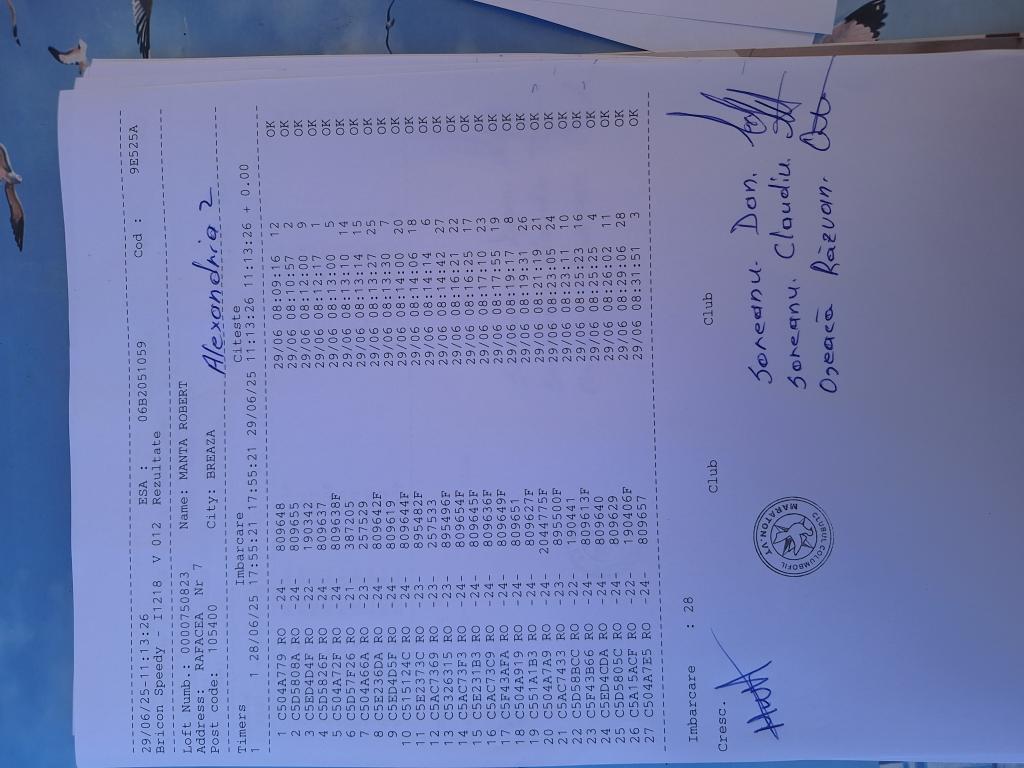 29/06/25-11:13:26 ESA : 06B2051059 Cod : 9E525A
Bricon Speedy - I1218 V 012 Rezultate
Loft Numb.: 0000750823 Name: MANTA ROBERT
Address: RAFACEA Nr 7
Post code: 105400 City: BREAZA Alexandria 2
Timers Imbarcare Citeste
1 1 28/06/25 17:55:21 17:55:21 29/06/25 11:13:26 11:13:26 + 0.00
1 C504A779 RO -24- 809648 29/06 08:09:16 12 OK
2 C5D5808A RO -24- 809655 29/06 08:10:57 2 OK
3 C5ED4D4F RO -22- 190342 29/06 08:12:00 9 OK
4 C5D5826F RO -24- 809637 29/06 08:12:17 1 OK
5 C504A72F RO -24- 809638F 29/06 08:13:00 5 OK
6 C5D7FF26 RO -21- 387205 29/06 08:13:10 14 OK
7 C504A66A RO -23- 257529 29/06 08:13:14 15 OK
8 C5E236DA RO -24- 809642F 29/06 08:13:27 25 OK
9 C5ED4D5F RO -24- 809619 29/06 08:13:30 7 OK
10 C515124C RO -24- 809644F 29/06 08:14:00 20 OK
11 C5E2373C RO -23- 895482F 29/06 08:14:06 18 OK
12 C5AC7369 RO -23- 257533 29/06 08:14:14 6 OK
13 C5326315 RO -23- 895496F 29/06 08:14:42 27 OK
14 C5AC73F3 RO -24- 809654F 29/06 08:16:21 22 OK
15 C5E231B3 RO -24- 809645F 29/06 08:16:25 17 OK
16 C5AC73C9 RO -24- 809636F 29/06 08:17:10 23 OK
17 C5F43AFA RO -24- 809649F 29/06 08:17:55 19 OK
18 C504A919 RO -24- 809651 29/06 08:19:17 8 OK
19 C551A1B3 RO -24- 809627F 29/06 08:19:31 26 OK
20 C504A7A9 RO -24- 2044775F 29/06 08:21:19 21 OK
21 C5AC7433 RO -23- 895500F 29/06 08:23:05 24 OK
22 C5D58BCC RO -22- 190441 29/06 08:23:11 10 OK
23 C5F43B66 RO -24- 809613F 29/06 08:25:23 16 OK
24 C5ED4CDA RO -24- 809640 29/06 08:25:25 4 OK
25 C5D5805C RO -24- 809629 29/06 08:26:02 11 OK
26 C5A15ACF RO -22- 190406F 29/06 08:29:06 28 OK
27 C504A7E5 RO -24- 809657 29/06 08:31:51 3 OK
Imbarcare : 28
Cresc. Club Club
Soreanu. Dan.
Soreanu. Claudiu.
Oseacă Răzvan.
CLUBUL COLUMBOFIL
MARATON.VT